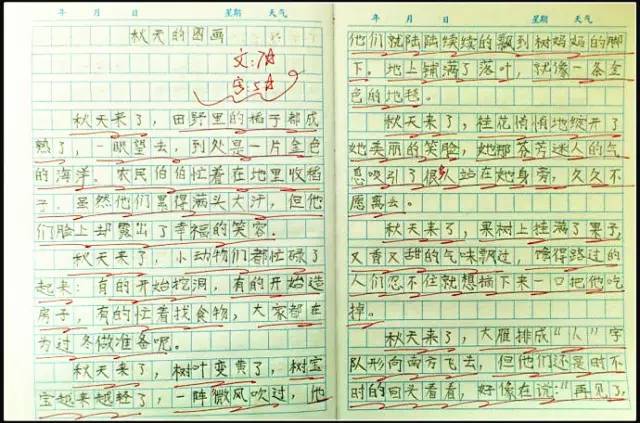 年 月 日 星期 天气
秋天的图画
文:7☆
字:5☆
秋天来了，田野里的稻子都成
熟了，一眼望去，到处是一片金色
的海洋。农民伯伯忙着在地里收稻
子。虽然他们累得满头大汗，但他
们脸上却露出了幸福的笑容。
秋天来了，小动物们都忙碌了
起来：有的开始挖洞，有的开始造
房子，有的忙着找食物，大家都在
为过冬做准备呢。
秋天来了，树叶变黄了，树宝
宝越来越轻了，一阵微风吹过，他
年 月 日 星期 天气
他们就陆陆续续的飘到树妈妈的脚
下。地上铺满了落叶，就像一条金
色的地毯。
秋天来了，桂花悄悄地绽开了
她美丽的笑脸，她那芬芳迷人的气
息吸引了很多人站在她身旁，久久不
愿离去。
秋天来了，果树上挂满了果子，
又香又甜的气味飘过，馋得路过的
人们忍不住就想摘下来一口把他吃
掉。
秋天来了，大雁排成“人”字
队形向南方飞去，但他们还是时不
时的回头看看，好像在说：“再见了，